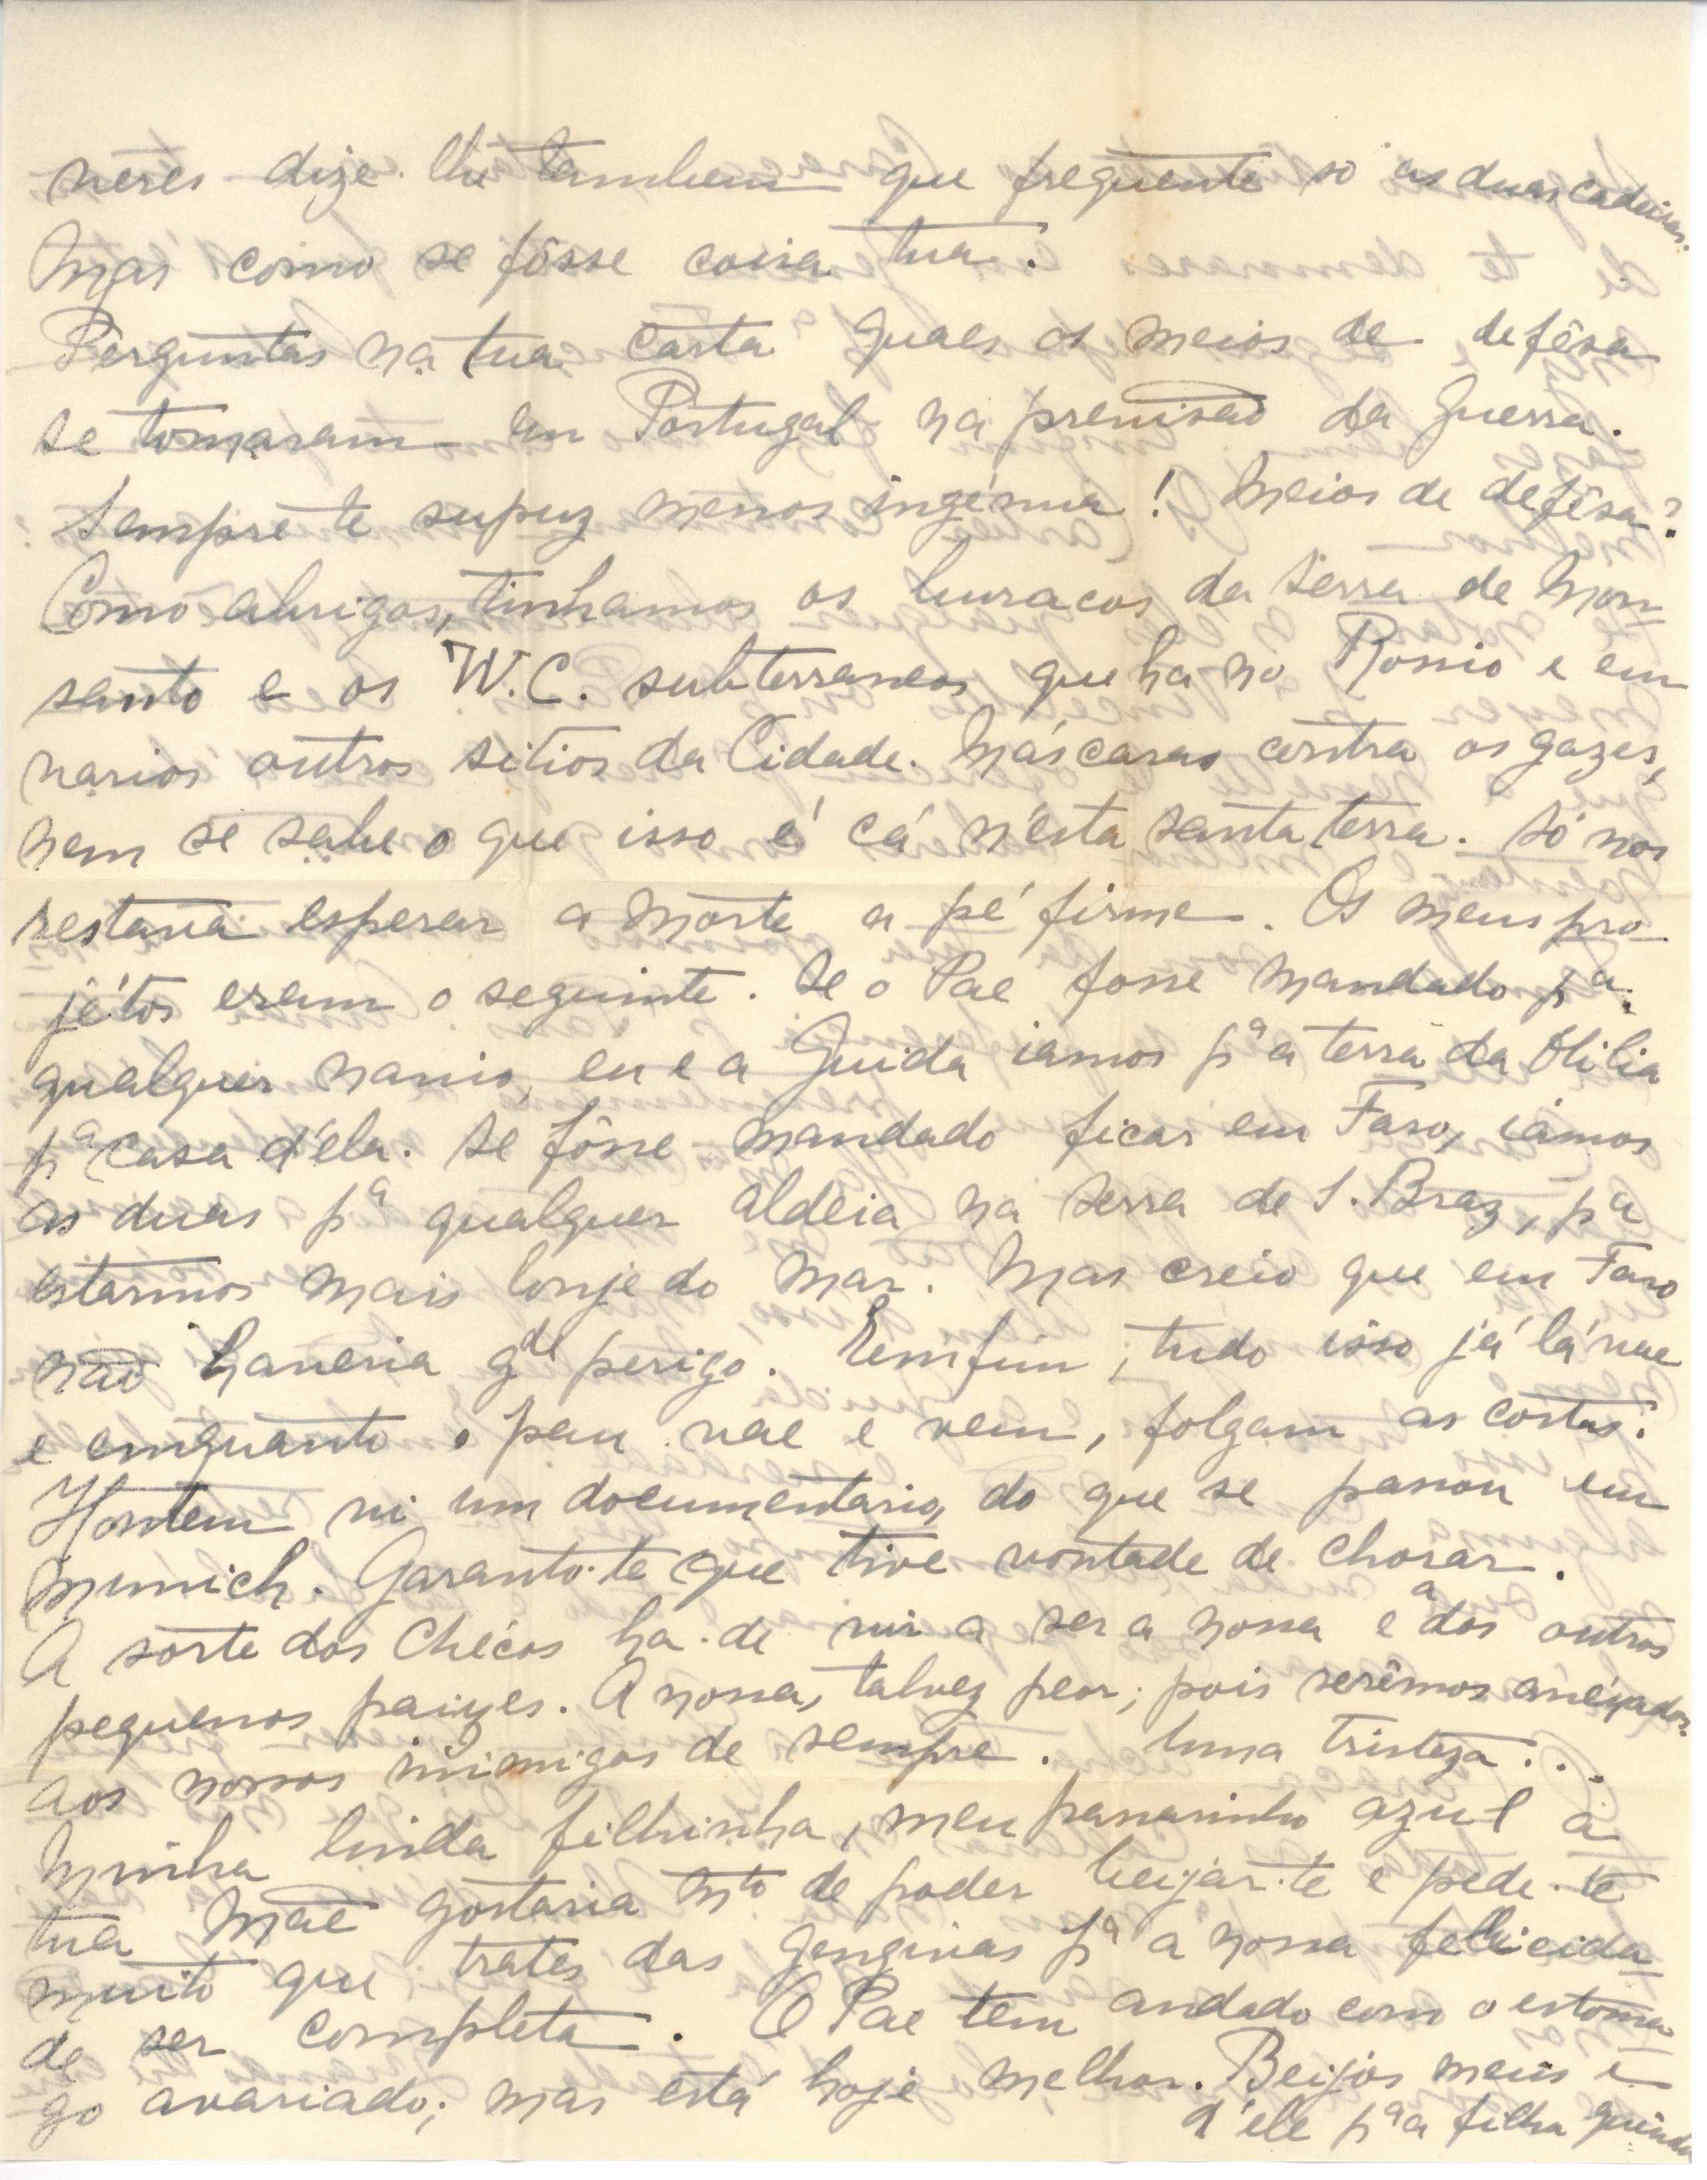 veres dize-lhe tambem que freqùente só as duas cadeiras.
Mas como se fôsse coisa tua.
Perguntas na tua carta quaes os meios de defêsa
se tomaram em Portugal na previsão da guerra.
Sempre te supuz menos ingénua! Meios de defêsa?
Como abrigos, tinhamos os buracos da serra de Mon-
santo e os W.C. subterraneos que ha no Rossio e em
varios outros sitios da Cidade. Máscaras contra os gazes,
nem se sabe o que isso é cá n'esta santa terra. Só nos
restava esperar a morte a pé firme. Os meus pro-
jétos eram o seguinte. Se o Pae fosse mandado pª
qualquer navio, eu e a Guida iamos pª a terra da Otilia
pª casa d'ela. Se fôsse mandado ficar em Faro, iamos
as duas pª qualquer aldeia na serra de S. Braz, pª
estarmos mais lonje do mar. Mas creio que em Faro
não haveria gde perigo. Emfim, tudo isso já lá vae
e emquanto o pau vae e vem, folgam as costas.
Hontem vi um documentario, do que se passou em
Munich. Garanto-te que tive vontade de chorar.
A sorte dos Chécos ha-de vir a ser a nossa e a dos outros
pequenos paizes. A nossa, talvez peor; pois serêmos anéxados
aos nossos inimigos de sempre. Uma tristeza...
Minha linda filhinha, meu passarinho azul a
tua Mãe gostaria mto de poder beijar-te e pede-te
muito que trates das gengivas pª a nossa felicida-
de ser completa. O Pae tem andado com o estoma-
go avariado; mas está hoje melhor. Beijos meus e
d'ele pª a filha quérida